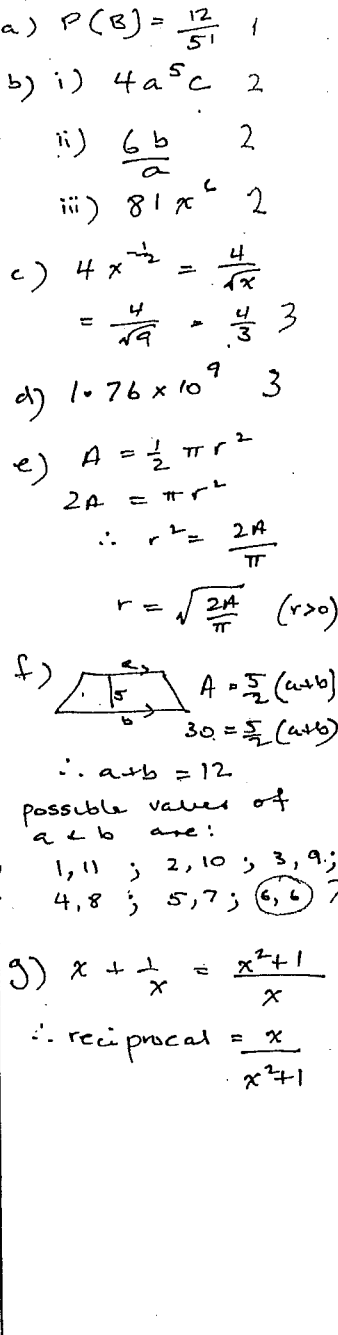 a) P(B) = 12/51 1
b) i) 4a⁵c 2
ii) 6b/a 2
iii) 81x⁶ 2
c) 4x^(-1/2) = 4/√x
= 4/√9 = 4/3 3
d) 1.76 × 10⁹ 3
e) A = 1/2 πr²
2A = πr²
∴ r² = 2A/π
r = √(2A/π) (r>0)
f) a 5 b A = 5/2 (a+b)
30 = 5/2 (a+b)
∴ a+b = 12
possible values of
a & b are:
1,11 ; 2,10 ; 3,9 ;
4,8 ; 5,7 ; 6,6
g) x + 1/x = x²+1/x
∴ reciprocal = x/x²+1